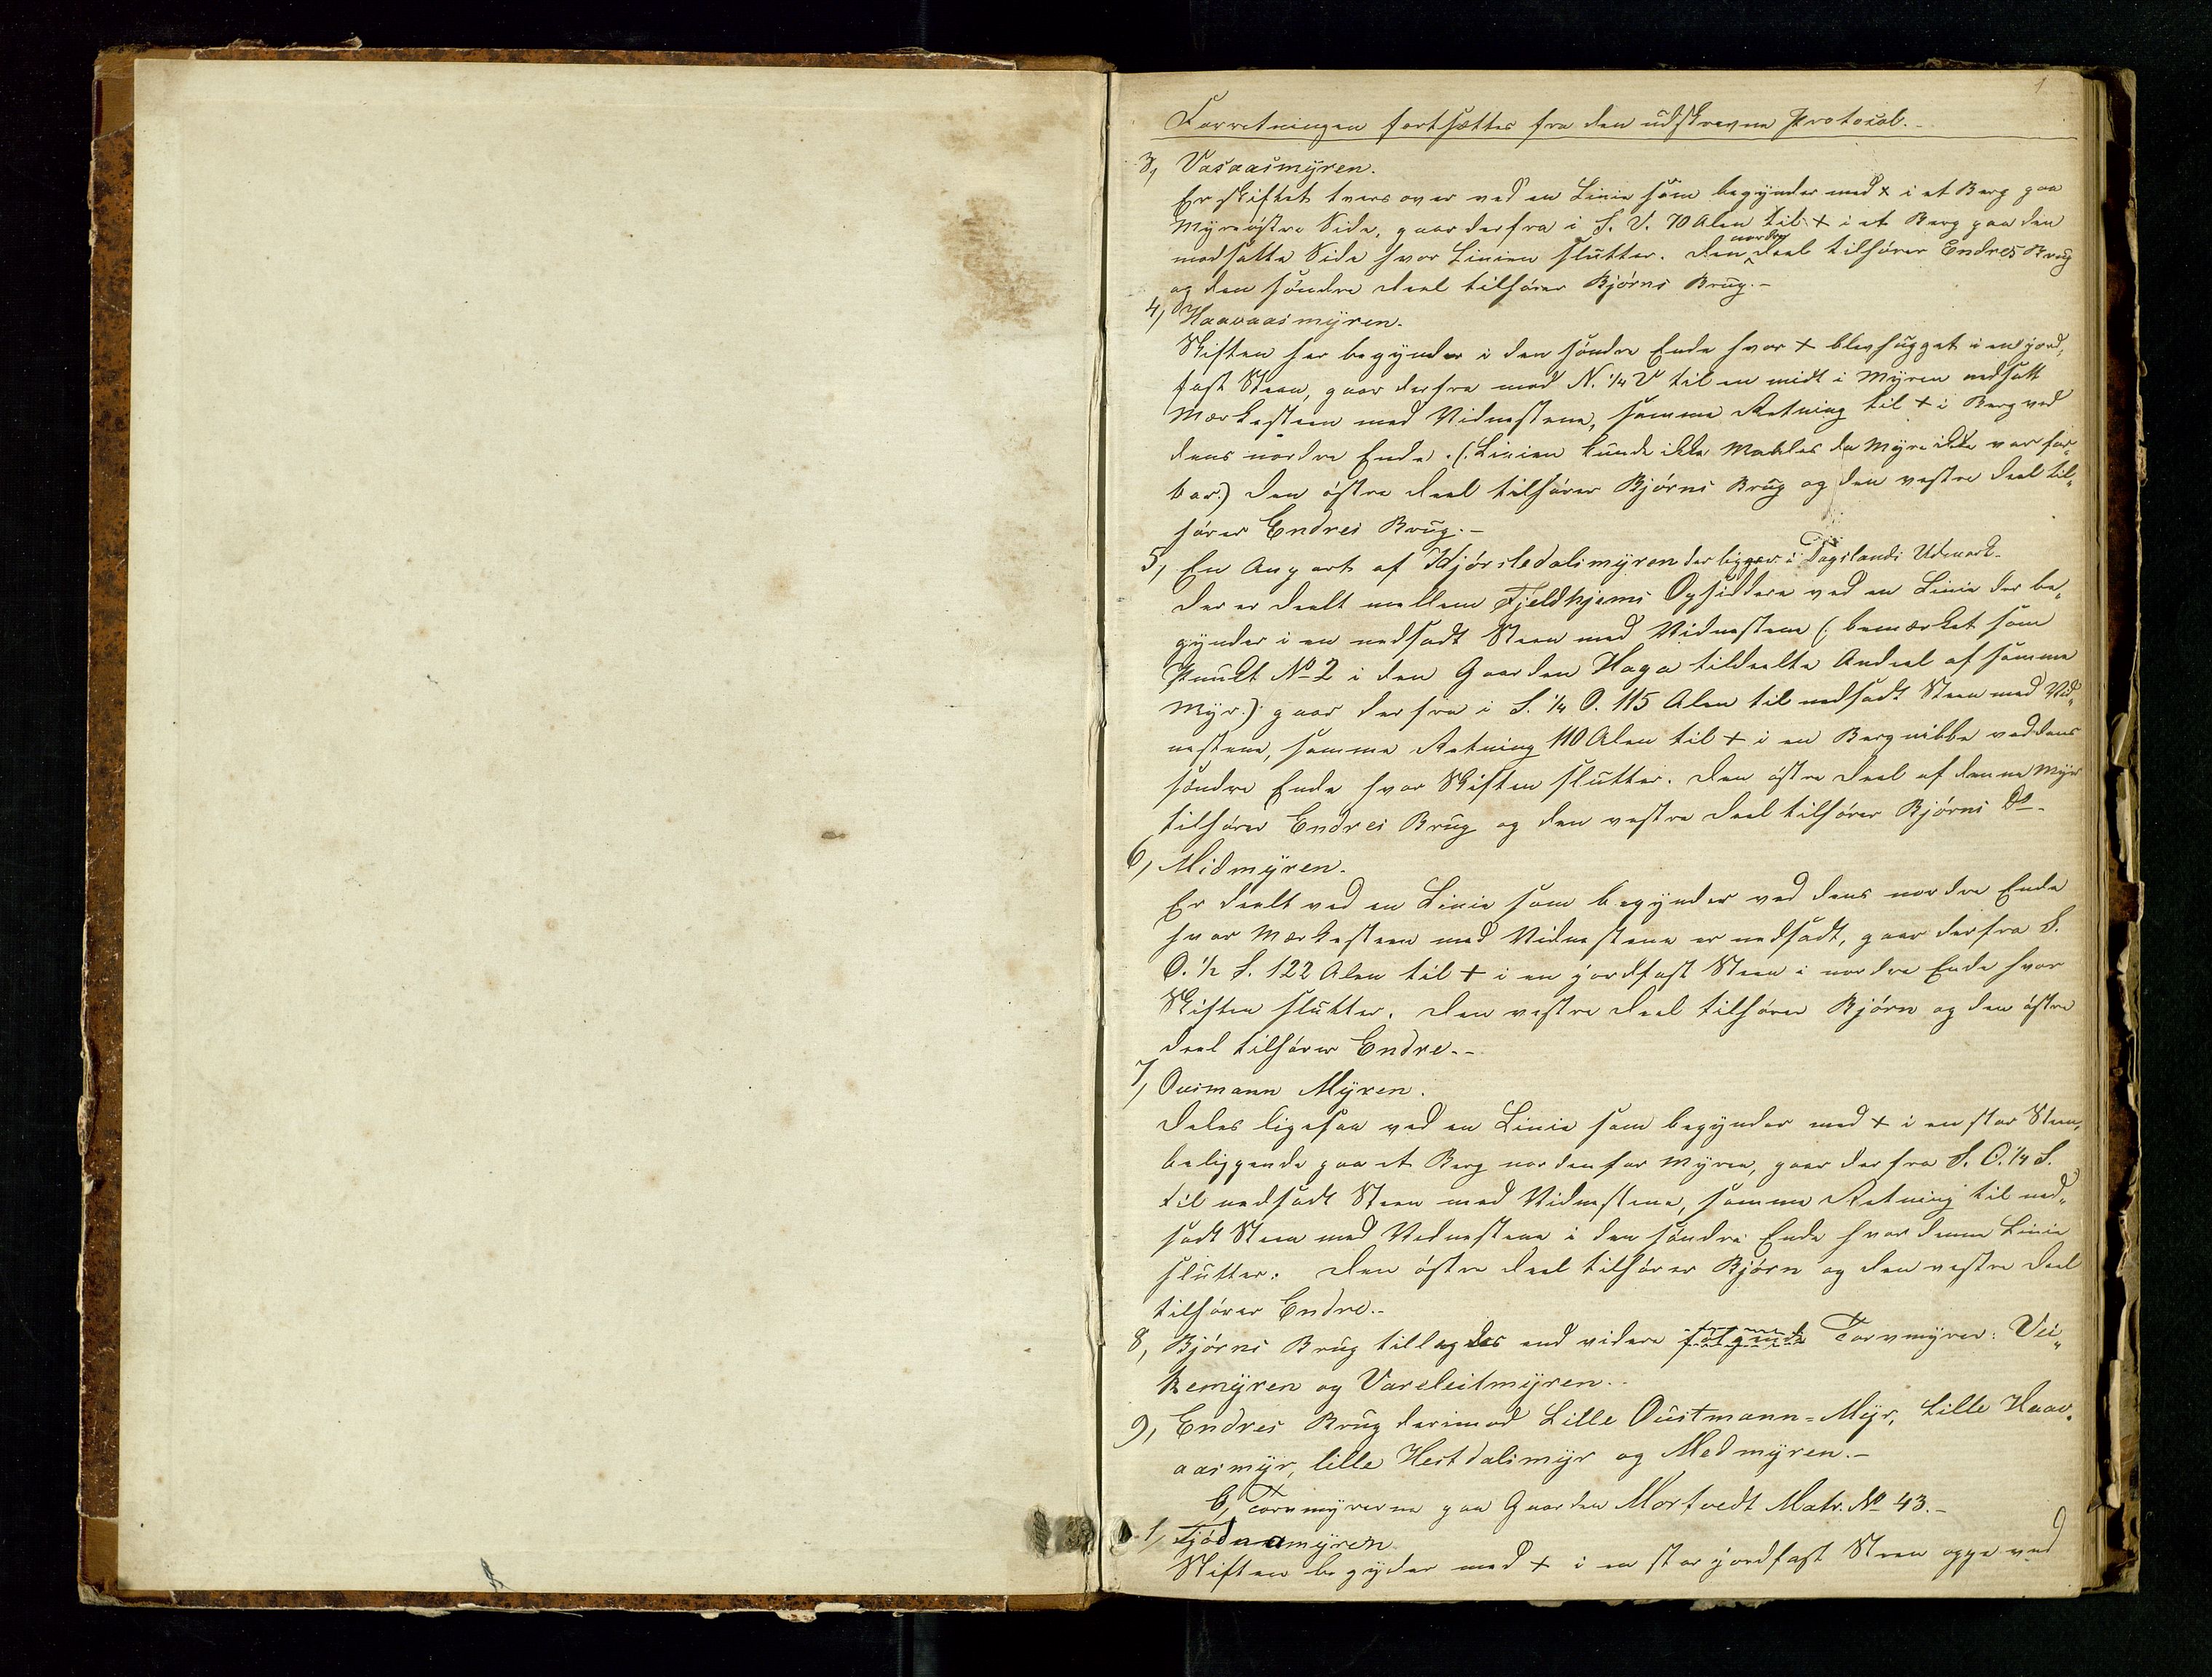 1
Forretningen fortsættes fra den udskrevne Protocol.-
3, Vasaasmÿren.
Er skiftet tvers over ved en Linie som begÿnder med + i et Berg paa
Mÿrs østre Side, gaar derfra i S. V. 70 Alen til + i et Berg paa den
modsatte Side hvor Linien slutter. Den nordre Deel tilhører Endres Brug
og den søndre Deel tilhører Bjørns Brug.-
4, Haavaasmÿren.
Skiften her begÿnder i den søndre Ende hvor + blev hugget i en jord,
fast Steen, gaar derfra mod N. 1/4 V til en midt i Mÿren nedsatt
Merkesteen med Vidnestene, samme Retning til + i Berg ved
dens nordre Ende. (: Linien kunde ikke Maales da Mÿre ikke var far„
bar.) Den østre Deel tilhører Bjørns Brug og den vestre Deel til„
hører Endres Brug.-
5, En Anpart af Kjørsledalsmÿren der ligger i Døgslands Udmark.
Der er deelt mellem Fjeldhjems Opsiddere ved en Linie der be„
gÿnder i en nedsadt Steen med Vidnestene (: bemærket som
Punkt No 2 i den Gaarden Haga tildeelte Andeel af samme
Mÿr:) gaar derfra i S. 1/4 O. 115 Alen til nedsadt Steen med Vid„
nestene, samme Retning 110 Alen til + i en Bergnibbe ved dens
søndre Ende hvor Skiften slutter. Den østre Deel af denne Mÿr
tilhører Endres Brug og den vestre Deel tilhører Bjørns Do.
6, Midmÿren.
Er deelt ved en Linie som begÿnder ved dens nordre Ende
hvor Merkesteen med Vidnestene er nedsadt, gaar derfra S.
O. 1/2 S. 122 Alen til + i en jordfast Steen i nordre Ende hvor
Skiften slutter. Den vestre Deel tilhører Bjørn og den østre
Deel tilhører Endre.-
7, Ousmann Mÿren.
Deles ligesaa ved en Linie som begÿnder med + i en stor Steen,
beliggende paa et Berg nordenfor Mÿren, gaar derfra S. O. 1/4 S.
til nedsadt Steen med Vidnestene, samme Retning til ned„
sadt Steen med Vidnestene i den søndre Ende hvor denne Linie
slutter. Den østre Deel tilhører Bjørn og den vestre Deel
tilhører Endre.-
8, Bjørns Brug tillagdes end videre følgende Torvmÿrer: Vei„
kemÿren og Vareleitmÿren.-
9, Endres Brug derimod Lille Oustmann=Mÿr, Lille Haav„
aasmÿr, lille Hestdalsmÿr og Medmÿren.-
6, Torvmÿrerne paa Gaarden Mortvedt Matr. No 43.-
1, Tjødnamÿren
Skiften begÿder med + i en stor jordfast Steen oppe ved